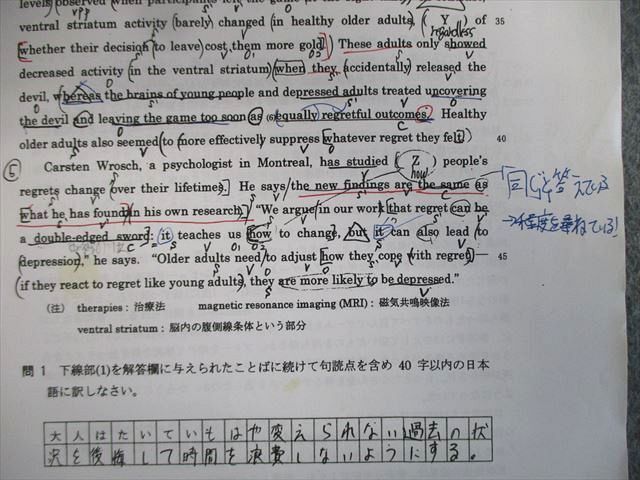 levels observed when participants left the game
ventral striatum activity (barely) changed (in healthy older adults), ( Y ) of 35
regardless
whether their decision to leave cost them more gold. These adults only showed
decreased activity (in the ventral striatum) when they (accidentally) released the
devil, whereas the brains of young people and depressed adults treated uncovering
the devil and leaving the game too soon as (6)equally regretful outcomes. Healthy
older adults also seemed (to more effectively suppress whatever regret they felt) 40
⑤ Carsten Wrosch, a psychologist in Montreal, has studied ( Z ) people's
how
regrets change (over their lifetimes). He says the new findings are the same as
what he has found in his own research. "We argue in our work that regret can be
a double-edged sword: it teaches us how to change, but it can also lead to
depression," he says. "Older adults need to adjust how they cope (with regret)— 45
(if they react to regret like young adults), they are more likely to be depressed."
(注) therapies:治療法 magnetic resonance imaging (MRI):磁気共鳴映像法
ventral striatum:脳内の腹側線条体という部分
問 1 下線部(1)を解答欄に与えられたことばに続けて句読点を含め 40 字以内の日本
語に訳しなさい。
大人はたいていもはや変えられない過去の状
況を後悔して時間を浪費しないようにする。